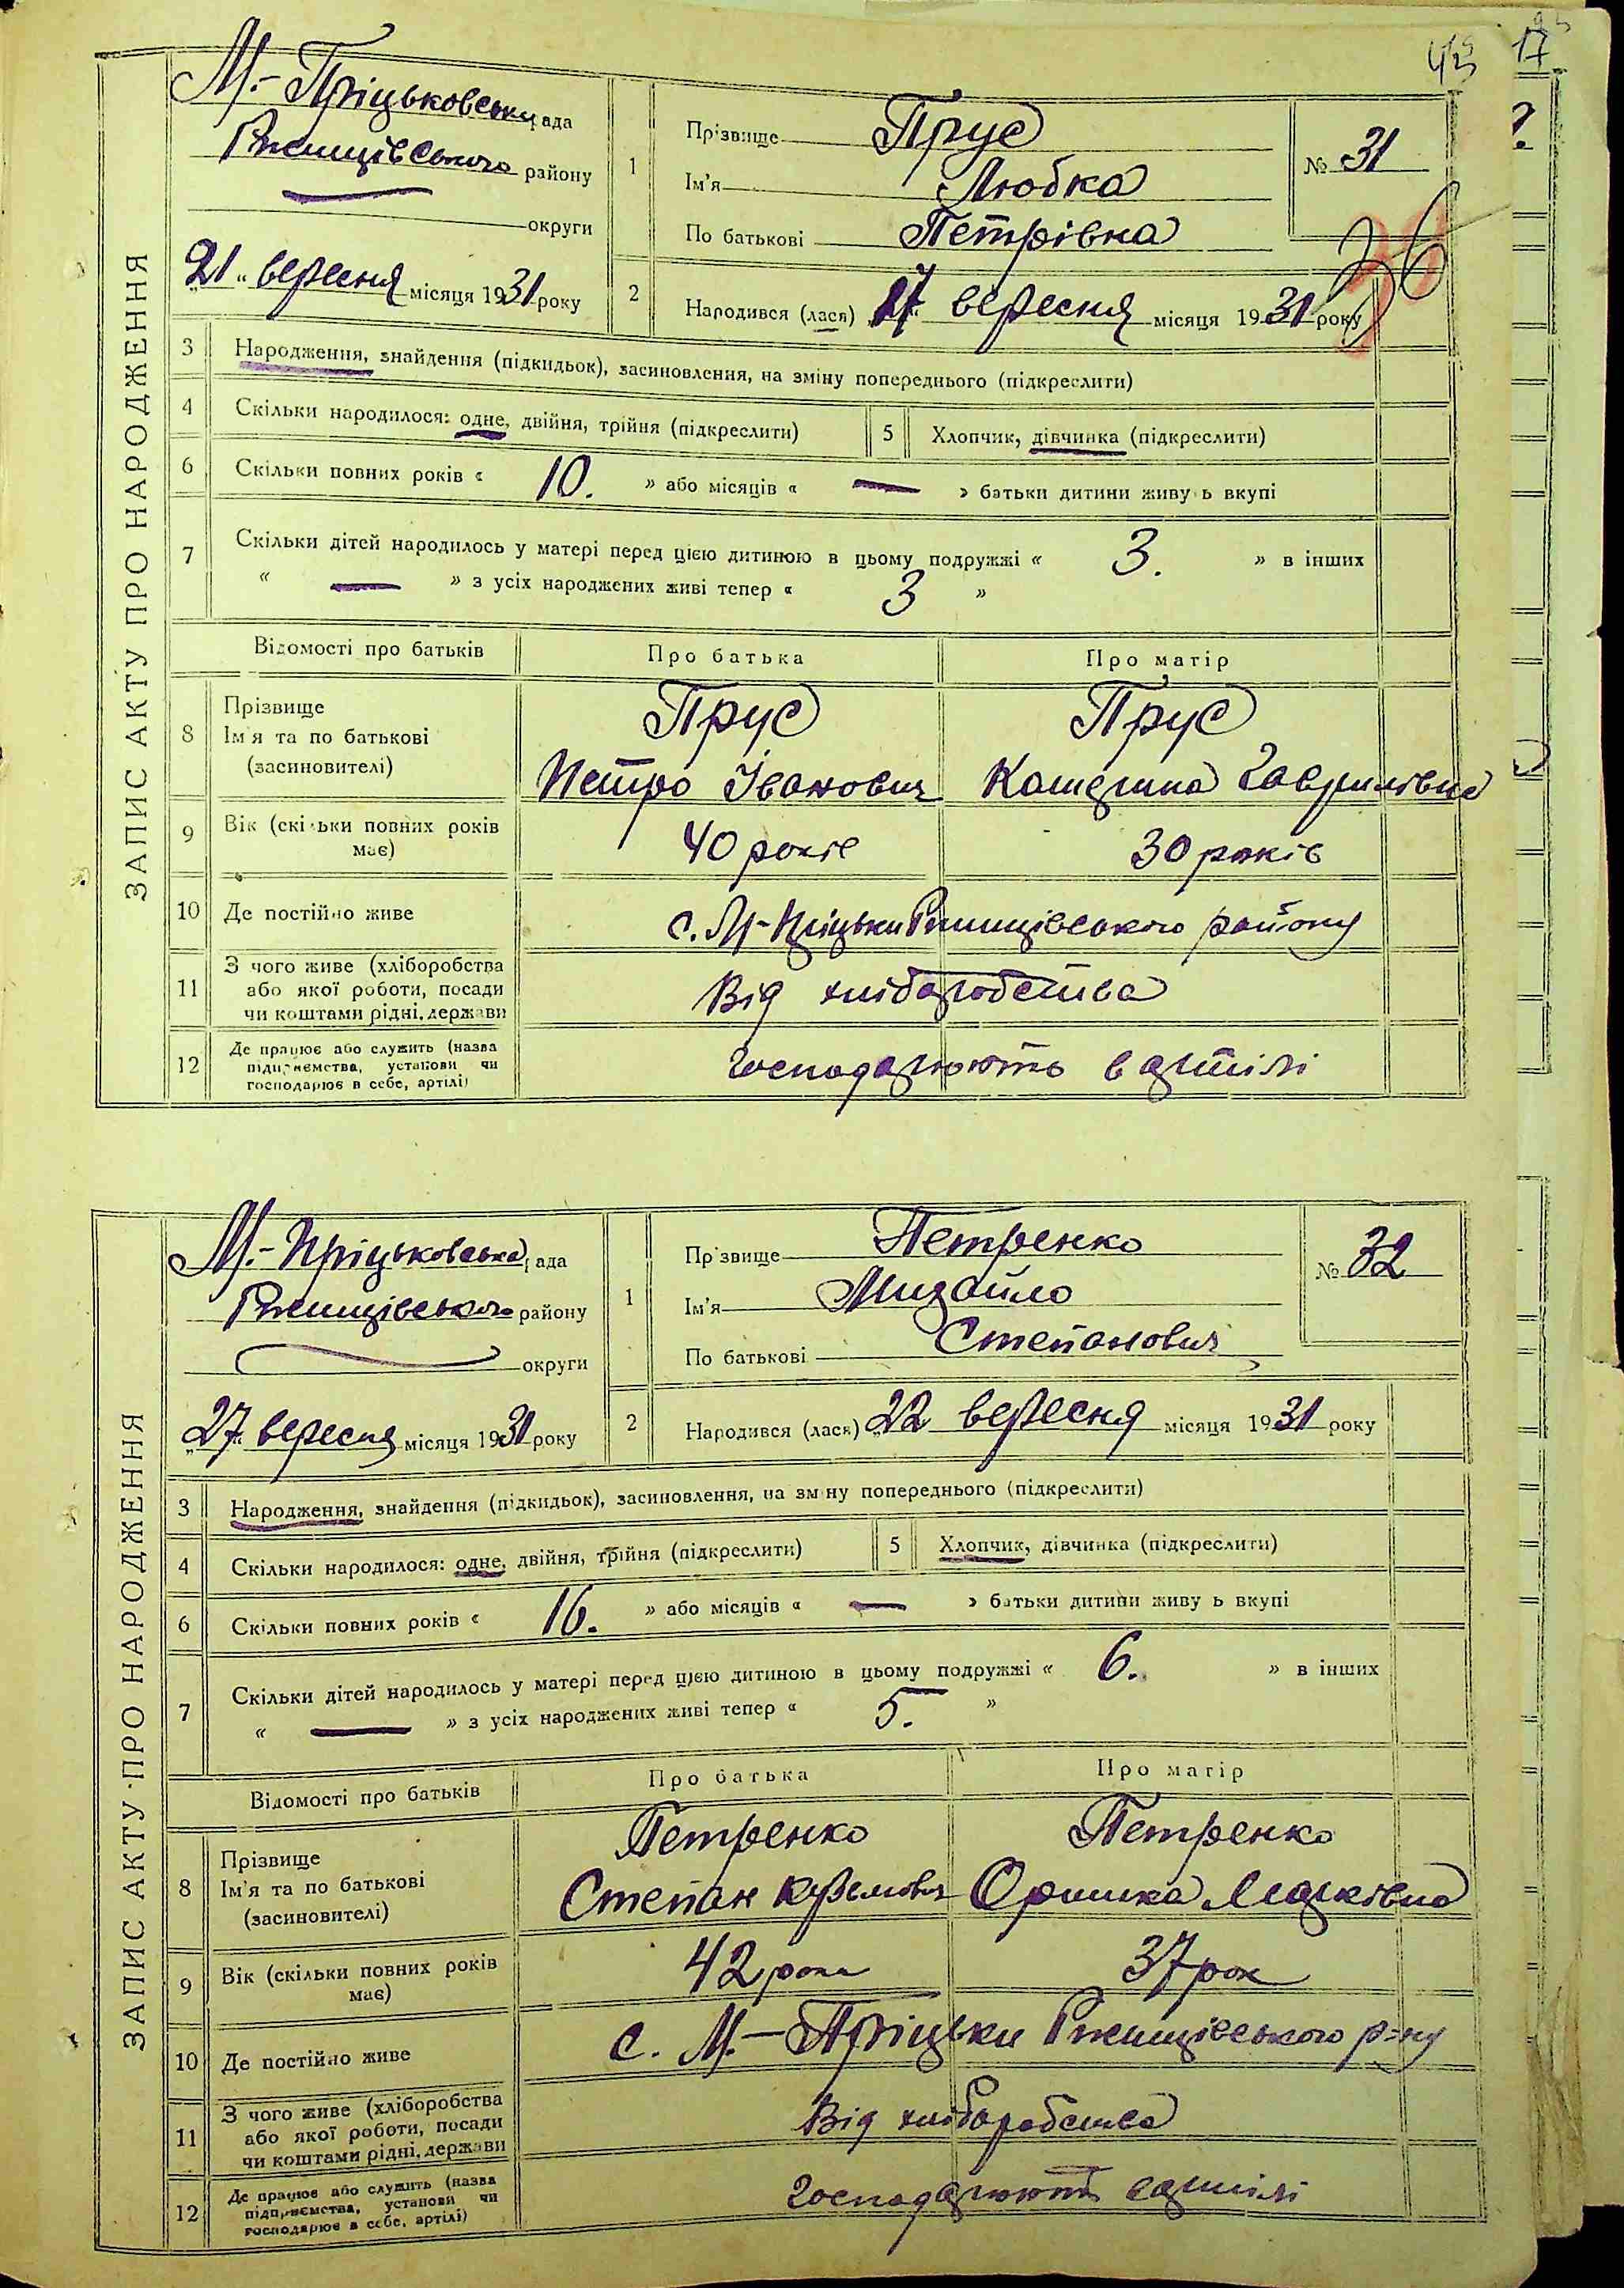 43
17
ЗАПИС АКТУ ПРО НАРОДЖЕННЯ
М.-Пріцьковська рада
Ржищівського району
округи
„21“ вересня місяця 1931 року
1
Прізвище Прус
Ім'я Любка
По батькові Петрівна
№ 31
26
2
Народився (лася) 17 вересня місяця 1931 року
3 Народження, знайдення (підкидьок), засиновлення, на зміну попереднього (підкреслити)
4 Скільки народилося: одне, двійня, трійня (підкреслити) 5 Хлопчик, дівчинка (підкреслити)
6 Скільки повних років « 10. » або місяців « — » батьки дитини живуть вкупі
7 Скільки дітей народилось у матері перед цією дитиною в цьому подружжі « 3. » в інших
« — » з усіх народжених живі тепер « 3 »
Відомості про батьків Про батька Про матір
8 Прізвище
Ім'я та по батькові
(засиновителі)
Прус Прус
Петро Іванович Катерина Гаврилівна
9 Вік (скільки повних років
має)
40 років 30 років
10 Де постійно живе с. М-Пріцьки Ржищівського району
11 З чого живе (хліборобства
або якої роботи, посади
чи коштами рідні, держави
Від хліборобства
12 Де працює або служить (назва
підприємства, установи чи
господарює в себе, артілі)
господарюють в артілі
ЗАПИС АКТУ ПРО НАРОДЖЕННЯ
М.-Пріцьковська рада
Ржищівського району
округи
„27“ вересня місяця 1931 року
1
Прізвище Петренко
Ім'я Михайло
По батькові Степанович
№ 32
2
Народився (лася) „22 вересня місяця 1931 року
3 Народження, знайдення (підкидьок), засиновлення, на зміну попереднього (підкреслити)
4 Скільки народилося: одне, двійня, трійня (підкреслити) 5 Хлопчик, дівчинка (підкреслити)
6 Скільки повних років « 16. » або місяців « — » батьки дитини живуть вкупі
7 Скільки дітей народилось у матері перед цією дитиною в цьому подружжі « 6. » в інших
« — » з усіх народжених живі тепер « 5. »
Відомості про батьків Про батька Про матір
8 Прізвище
Ім'я та по батькові
(засиновителі)
Петренко Петренко
Степан Оришка
9 Вік (скільки повних років
має)
42 роки 37 рок
10 Де постійно живе с. М.-Пріцьки Ржищівського р-ну
11 З чого живе (хліборобства
або якої роботи, посади
чи коштами рідні, держави
Від хліборобства
12 Де працює або служить (назва
підприємства, установи чи
господарює в себе, артілі)
господарюють в артілі